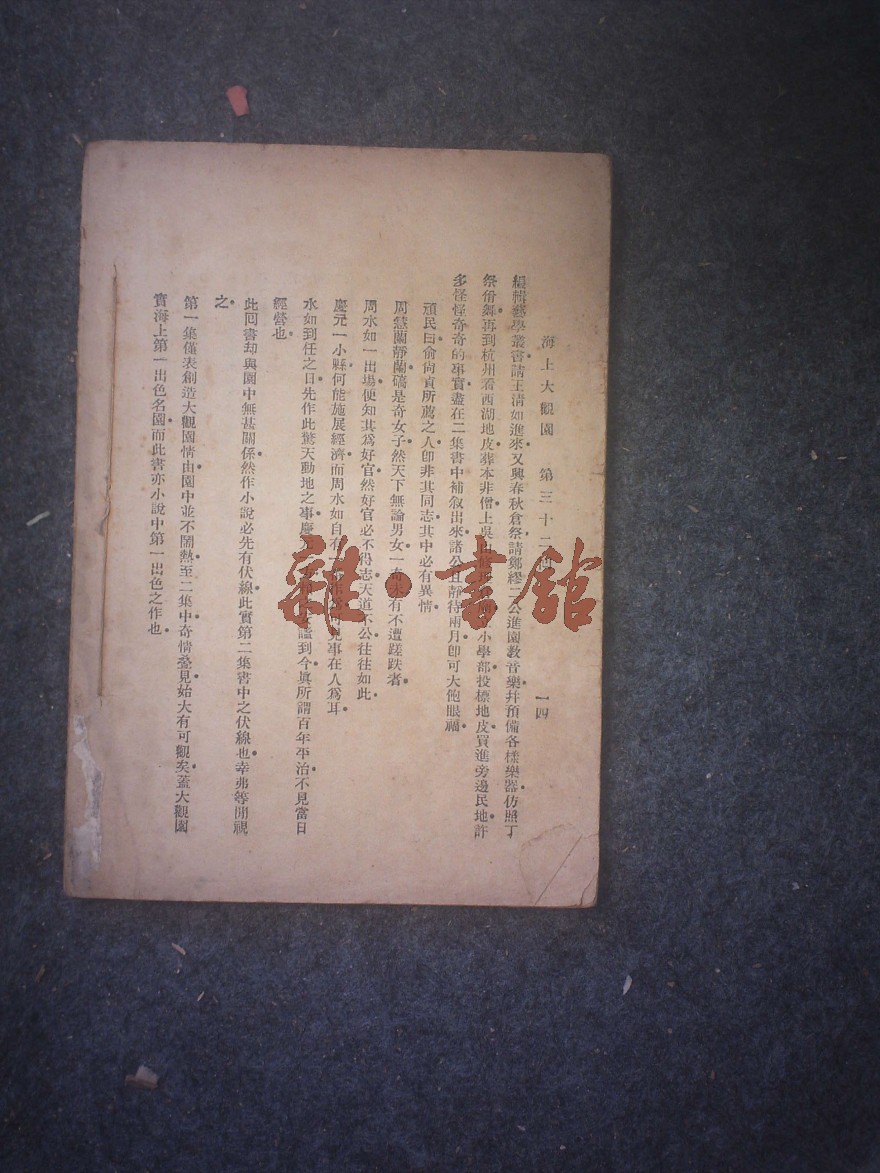 海上大觀園　第三十二回　一四
編輯藝學叢書請王清如進來又興春秋倉祭請鄭繆二公進園教音樂幷預備各樣樂器仿照丁
祭佾舞再到杭州看西湖地皮葬本非僧上吳山小學部投標地皮買進旁邊民地許
多怪怪奇奇的事實盡在二集書中補敘出來諸公且靜待兩月卽可大飽眼福
頑民曰俞尙貞所薦之人卽非其同志其中必有異情
周慧蘭靜蘭确是奇女子然天下無論男女一奇未有不遭蹉跌者
周水如一出場便知其爲好官然好官必不得志天道不公往往如此
慶元一小縣何能施展經濟而周水如自有一見事在人爲耳
水如到任之日先作此驚天動地之事慶元謐到今眞所謂百年平治不見當日
經營也
此回書却與園中無甚關係然作小說必先有伏線此實第二集書中之伏線也幸弗等閒視
之
第一集僅表創造大觀園情由園中並不鬧熱至二集中奇情叠見始大有可觀矣蓋大觀園
實海上第一出色名園而此書亦小說中第一出色之作也
雜·書館